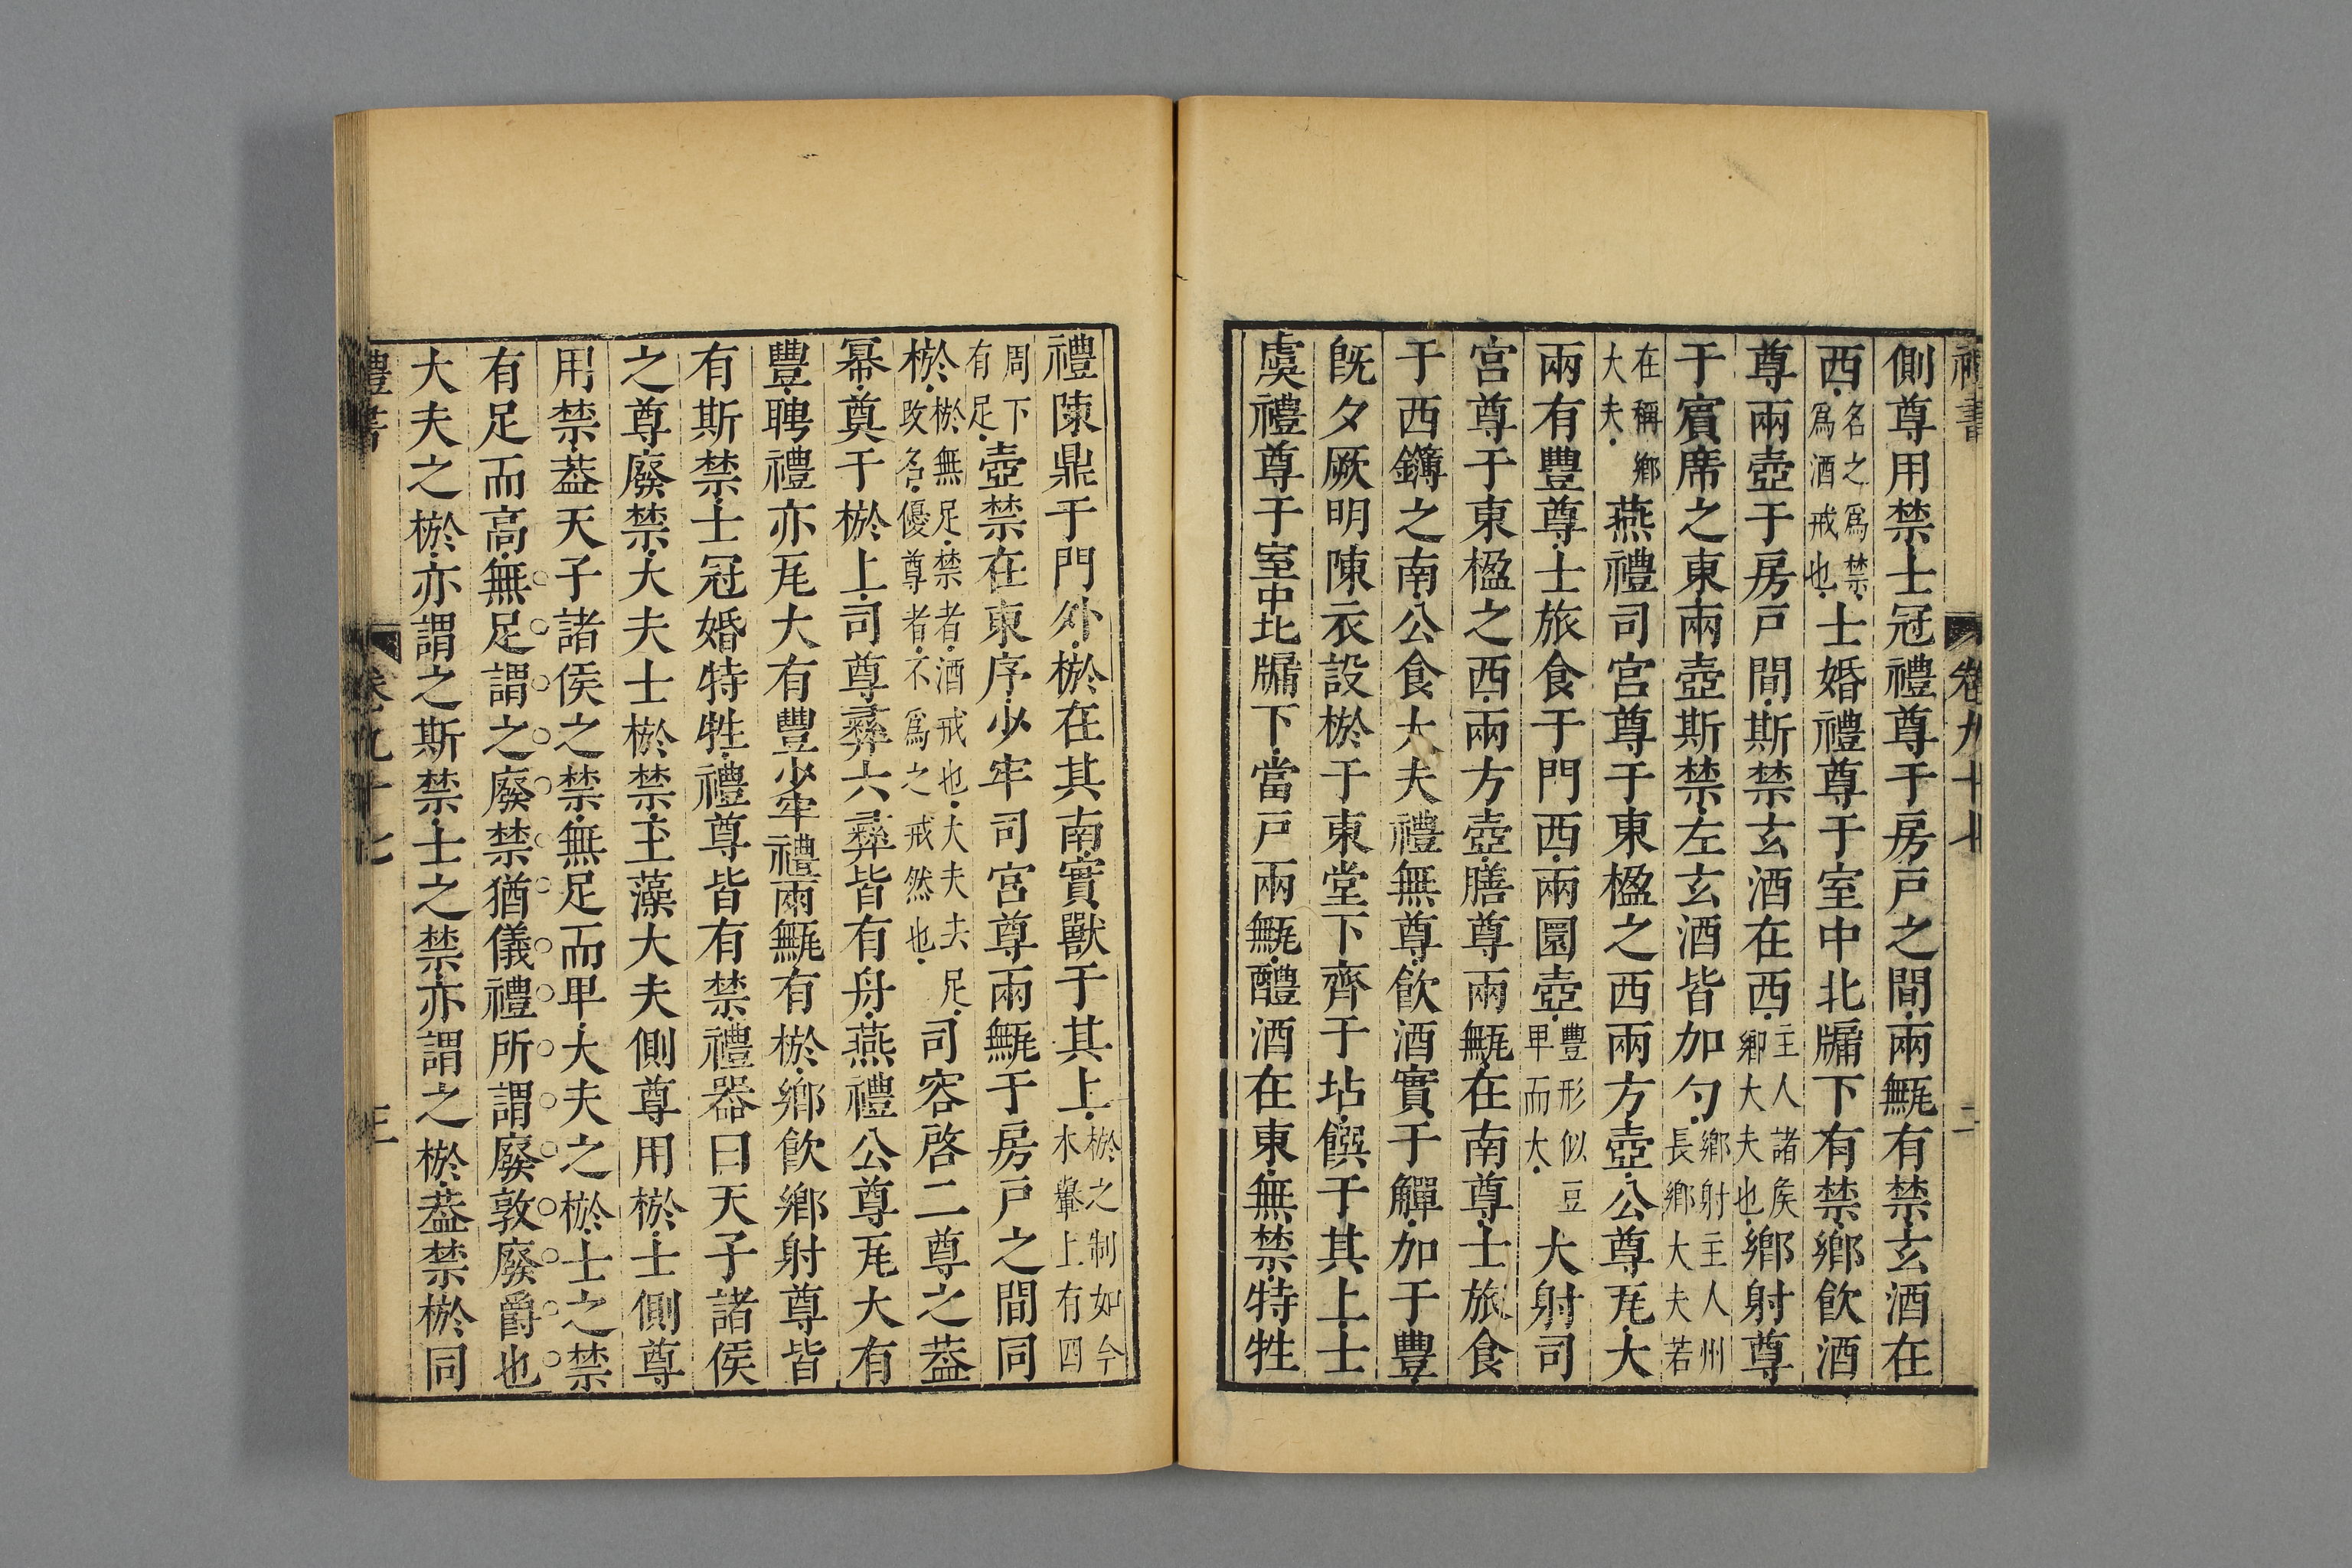 禮書 卷九十七 二
側尊用禁士冠禮尊于房戸之間兩甒有禁玄酒在
西名之爲禁爲酒戒也士婚禮尊于室中北牖下有禁鄉飲酒
尊兩壺于房戸間斯禁玄酒在西主人諸矦卿大夫也鄉射尊
于賓席之東兩壺斯禁左玄酒皆加勺鄉射主人州長鄉大夫若
在稱鄉大夫燕禮司宮尊于東楹之西兩方壺公尊瓦大
兩有豐尊士旅食于門西兩圜壺豐形似豆𤰞而大大射司
宮尊于東楹之西兩方壺膳尊兩甒在南尊士旅食
于西鑮之南公食大夫禮無尊飲酒實于觶加于豐
旣夕厥明陳衣設棜于東堂下齊于坫饌于其上士
虞禮尊于室中北牖下當戸兩甒醴酒在東無禁特牲
禮陳鼎于門外棜在其南實獸于其上棜之制如今木轝上有四
周下有足壺禁在東序少牢司宮尊兩甒于房戸之間同
棜棜無足禁者酒戒也大夫去足攺名優尊者不爲之戒然也司容啓二尊之葢
冪奠于棜上司尊彝六彝皆有舟燕禮公尊瓦大有
豐聘禮亦瓦大有豐少牢禮兩甒有棜鄉飲鄉射尊皆
有斯禁士冠婚特牲禮尊皆有禁禮器曰天子諸侯
之尊廢禁大夫士棜禁玉藻大夫側尊用棜士側尊
用禁葢天子諸侯之禁無足而𤰞大夫之棜士之禁
有足而高無足謂之廢禁猶儀禮所謂廢敦廢爵也
大夫之棜亦謂之斯禁士之禁亦謂之棜葢禁棜同
禮書 卷九十七 三